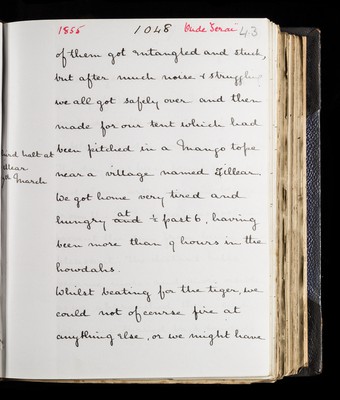 1855 1048 Oude Terai 43
of them got entangled and stuck,
but after much noise & struggling
we all got safely over and then
made for our tent which had
been pitched in a Mango tope
near a village named Tillear.
We got home very tired and
hungry at ½ past 6, having
been more than 9 hours in the
howdahs.
Whilst beating for the tiger, we
could not of course fire at
anything else, or we might have
halt at
March